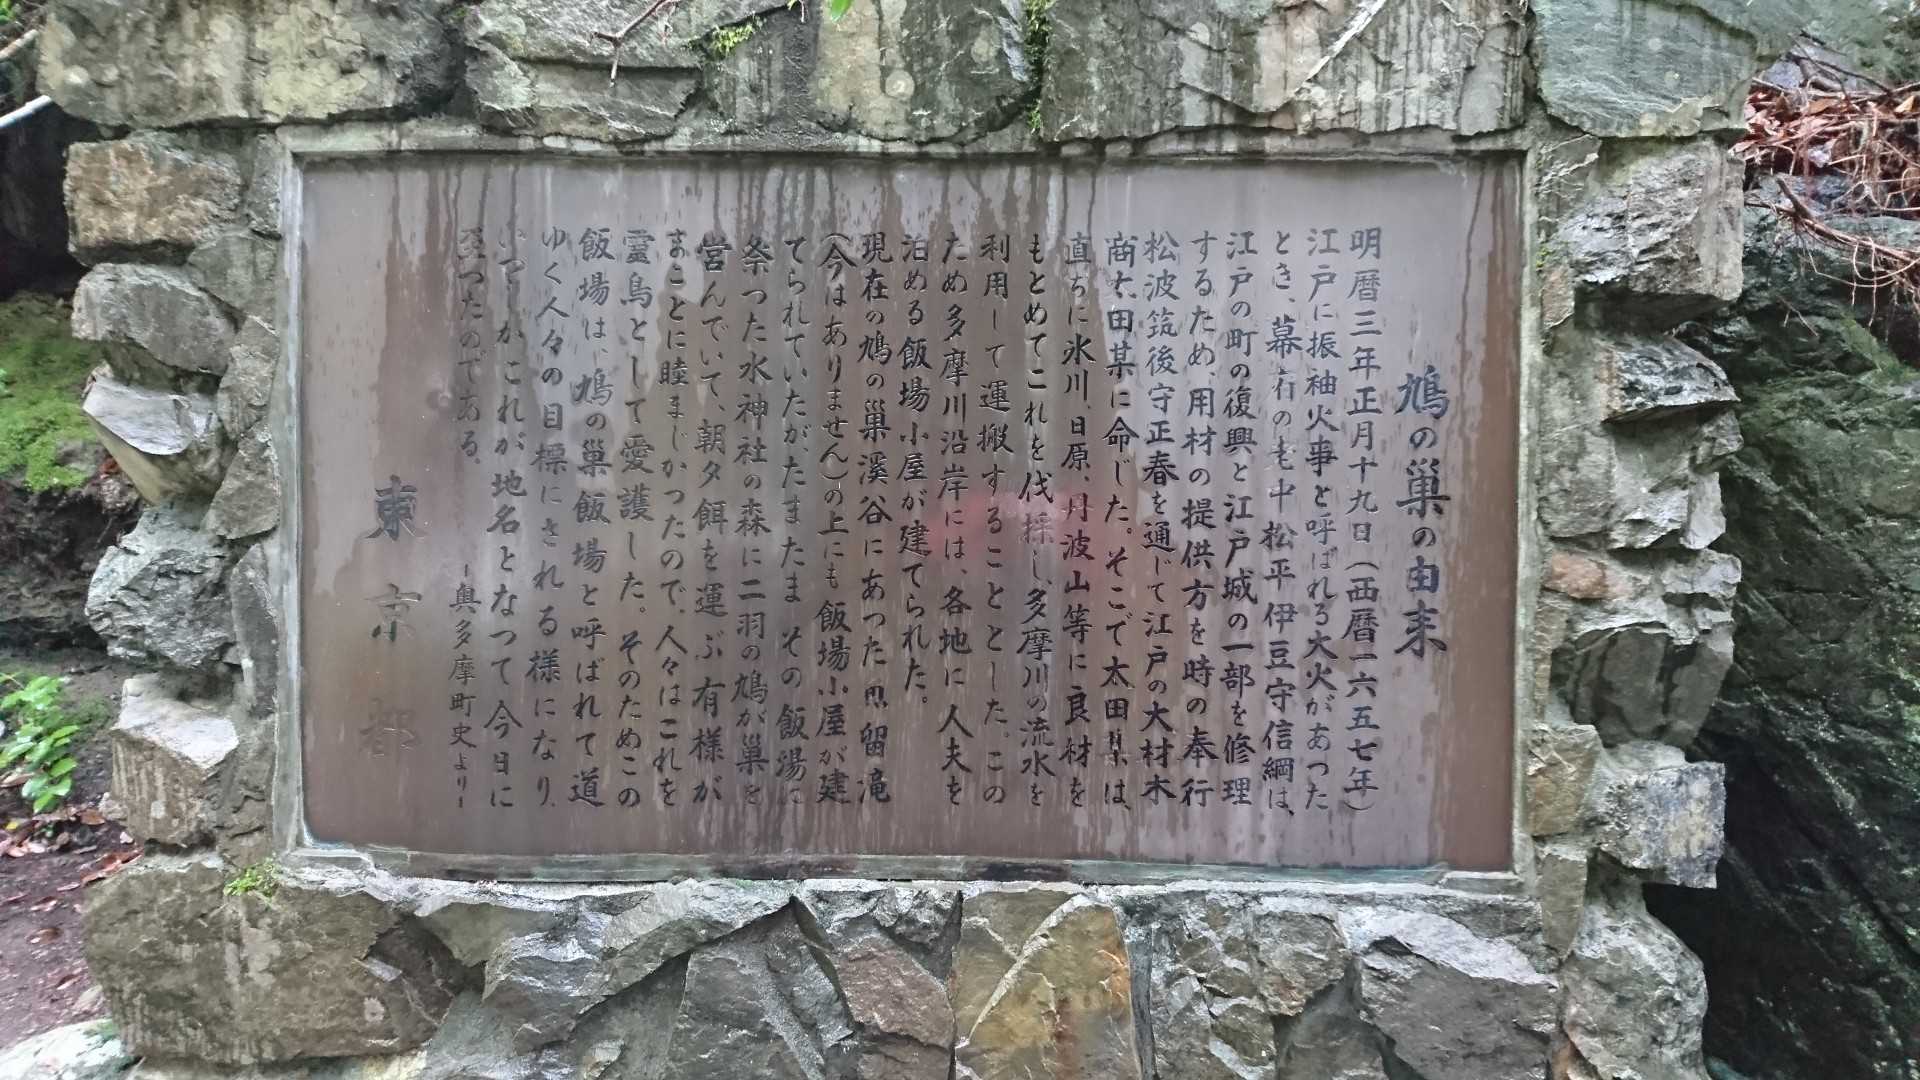 鳩の巣の由来
明暦三年正月十九日(西暦一六五七年)
江戸に振袖火事と呼ばれる大火があった
とき、幕府の老中松平伊豆守信綱は、
江戸の町の復興と江戸城の一部を修理
するため、用材の提供方を時の奉行
松波筑後守正春を通じて江戸の大材木
商太田某に命じた。そこで太田某は、
直ちに氷川、日原、丹波山等に良材を
もとめてこれを伐採し、多摩川の流水を
利用して運搬することとした。この
ため多摩川沿岸には、各地に人夫を
泊める飯場小屋が建てられた。
現在の鳩の巣溪谷にあつた魚留滝
(今はありません)の上にも飯場小屋が建
てられていたが、たまたま その飯場に
祭つた水神社の森に二羽の鳩が巣を
営んでいて、朝夕餌を運ぶ有様が
まことに睦まじかつたので、人々はこれを
霊鳥として愛護した。そのためこの
飯場は、鳩の巣飯場と呼ばれて道
ゆく人々の目標にされる様になり、
いつしかこれが地名となつて今日に
至つたのである。
-奥多摩町史より-
東京都